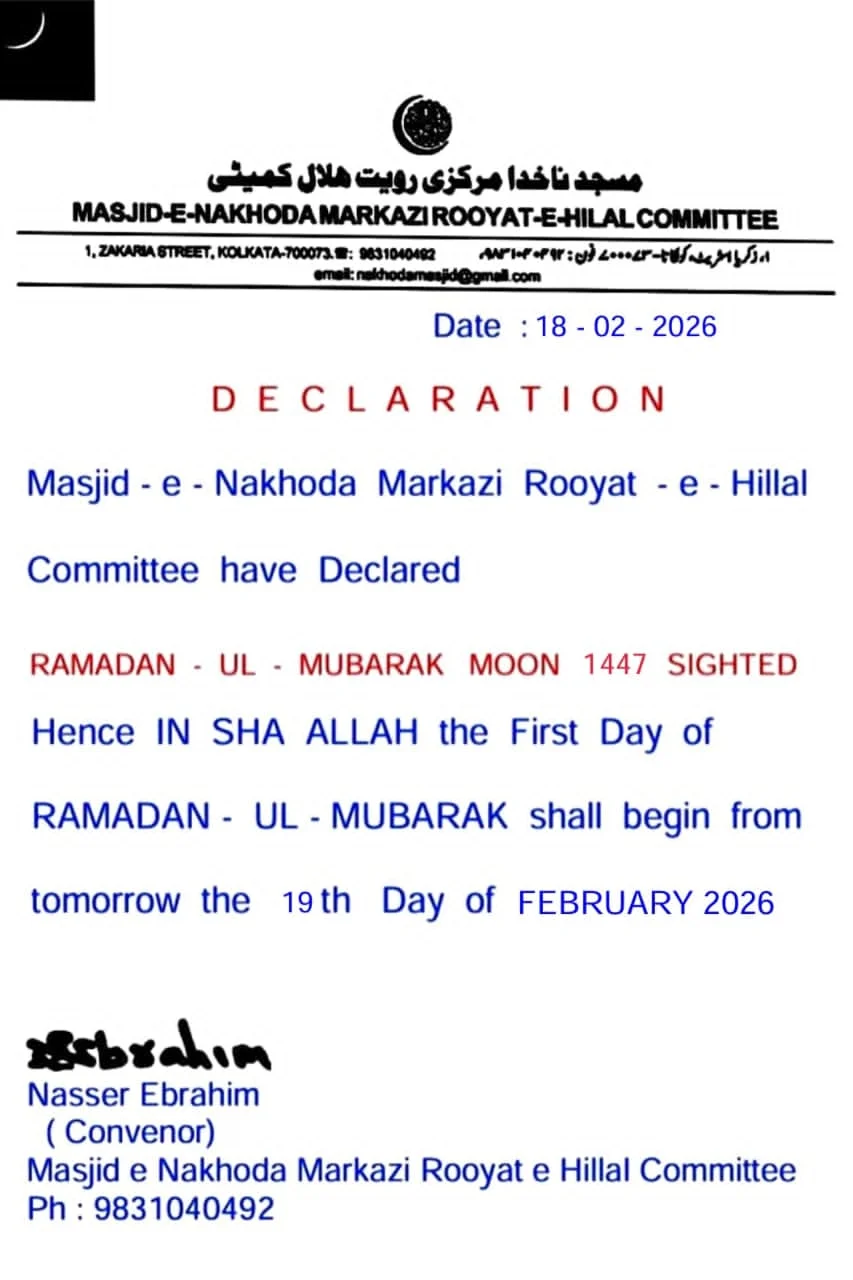 مسجد ناخدا مرکزی رویت هلال کمیٹی
MASJID-E-NAKHODA MARKAZI ROOYAT-E-HILAL COMMITTEE
1, ZAKARIA STREET, KOLKATA-700073.☎: 9831040492
email: nakhodamasjid@gmail.com
Date : 18 - 02 - 2026
DECLARATION
Masjid - e - Nakhoda Markazi Rooyat - e - Hillal
Committee have Declared
RAMADAN - UL - MUBARAK MOON 1447 SIGHTED
Hence IN SHA ALLAH the First Day of
RAMADAN - UL - MUBARAK shall begin from
tomorrow the 19th Day of FEBRUARY 2026
Nasser Ebrahim
( Convenor)
Masjid e Nakhoda Markazi Rooyat e Hillal Committee
Ph : 9831040492